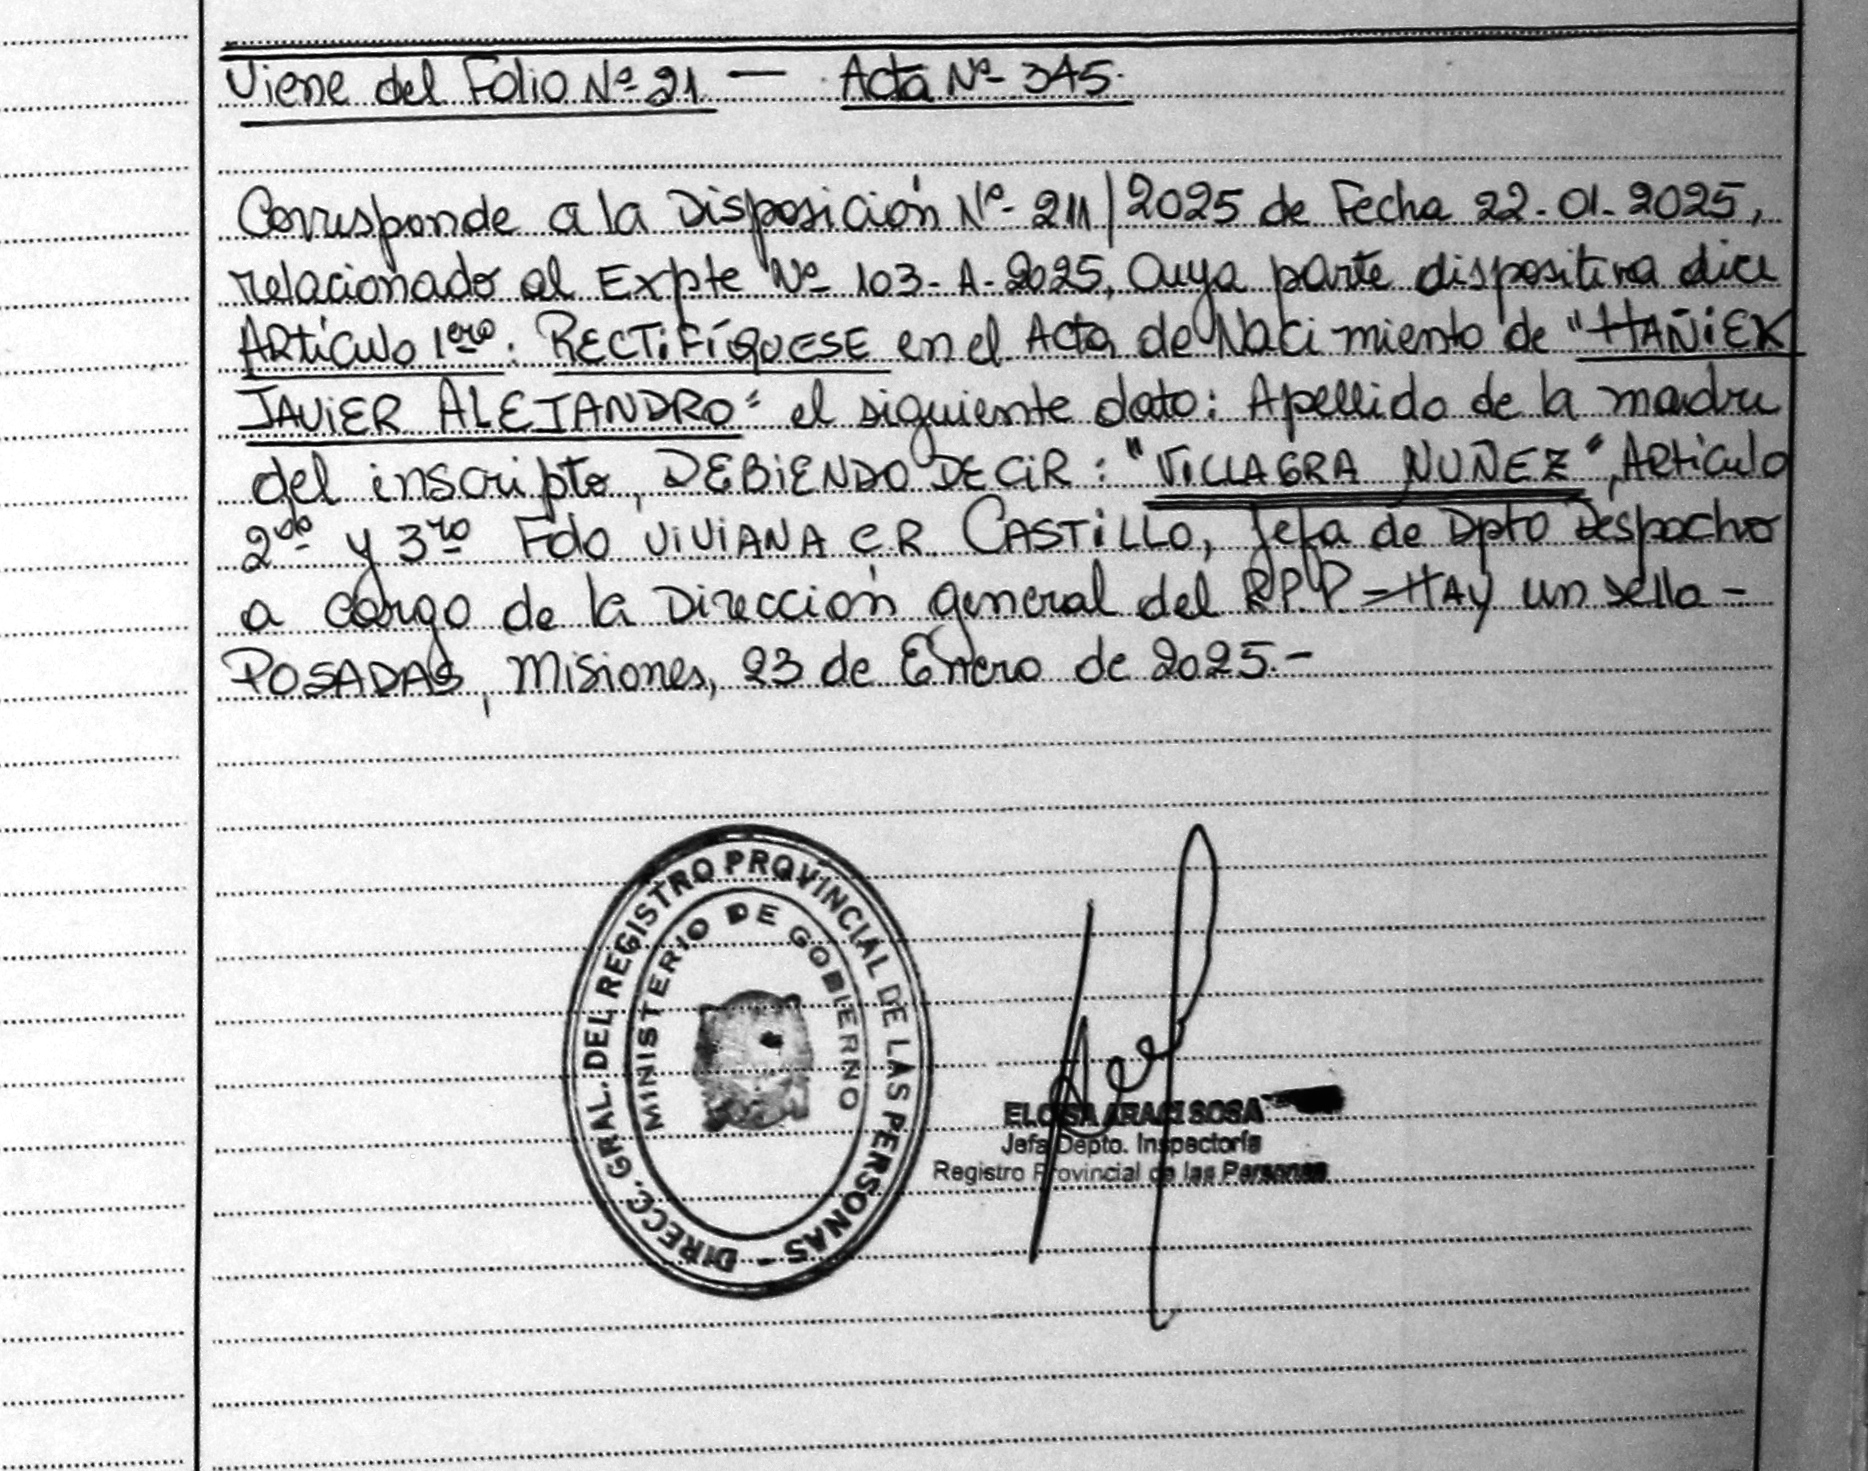 Viene del Folio Nº 21 — Acta Nº 345.
Corresponde a la Disposición Nº 211/2025 de Fecha 22-01-2025,
relacionado al Expte Nº 103-A-2025, Cuya parte dispositiva dice
Artículo 1ero: RECTIFÍQUESE en el Acta de Nacimiento de "HAÑIEK
JAVIER ALEJANDRO" el siguiente dato: Apellido de la madre
del inscripto, DEBIENDO DECIR: "VILLAGRA NUÑEZ", Artículo
2do y 3ro Fdo VIVIANA C.R. CASTILLO, Jefa de Dpto Despacho
a cargo de la Dirección general del R.P.P = HAY un sello -
POSADAS, Misiones, 23 de Enero de 2025.-
DIRECC. GRAL. DEL REGISTRO PROVINCIAL DE LAS PERSONAS -
MINISTERIO DE GOBIERNO
ELOISA ARACI SOSA
Jefa Depto. Inspectoría
Registro Provincial de las Personas